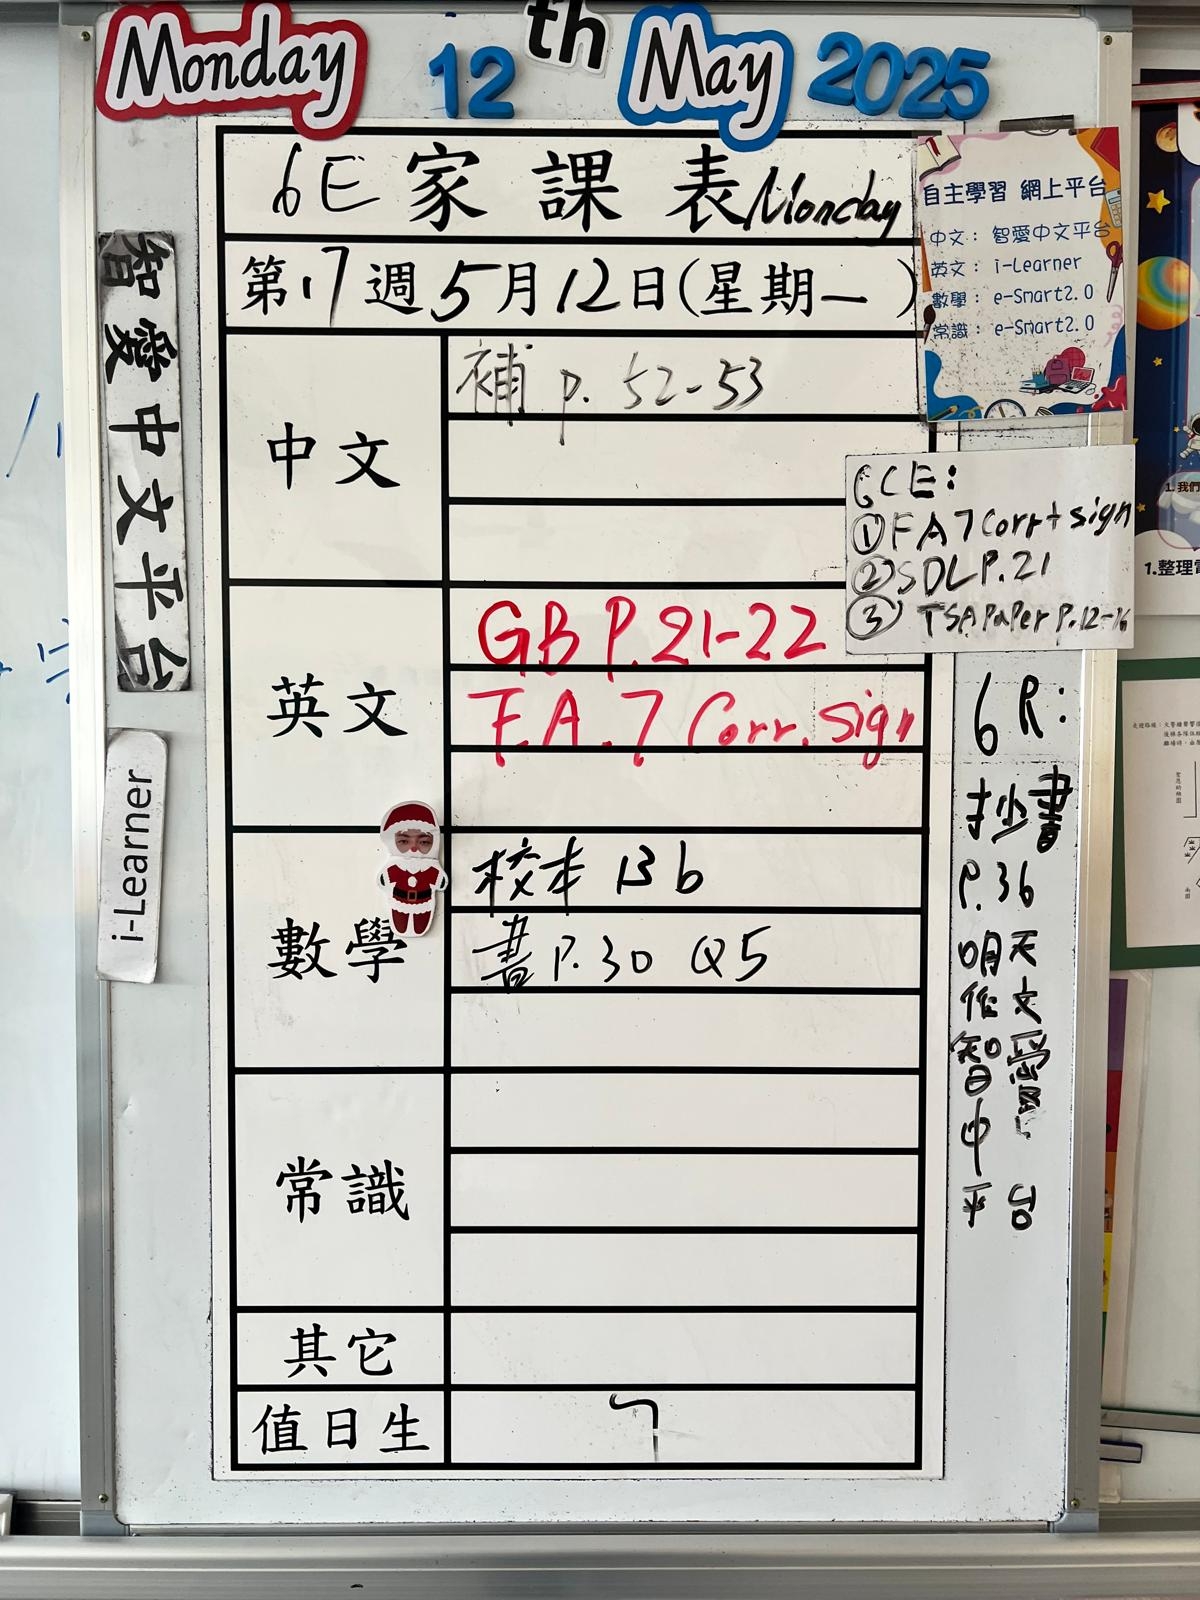 Monday 12th May 2025
6E 家課表 Monday
第17週5月12日(星期一)
中文
補 p. 52-53
英文
GB P.21-22
F.A.7 Corr. sign
數學
校本 13b
書 P.30 Q5
常識
其它
值日生
7
智愛中文平台
i-Learner
自主學習 網上平台
中文: 智愛中文平台
英文: i-Learner
數學: e-Smart2.0
常識: e-Smart2.0
6CE:
①FA7 Corr+sign
②SDL P.21
③ TSA PaPer P.12-16
6R:
抄書
P.36
明天
作文
智愛
中
平台
1.整理